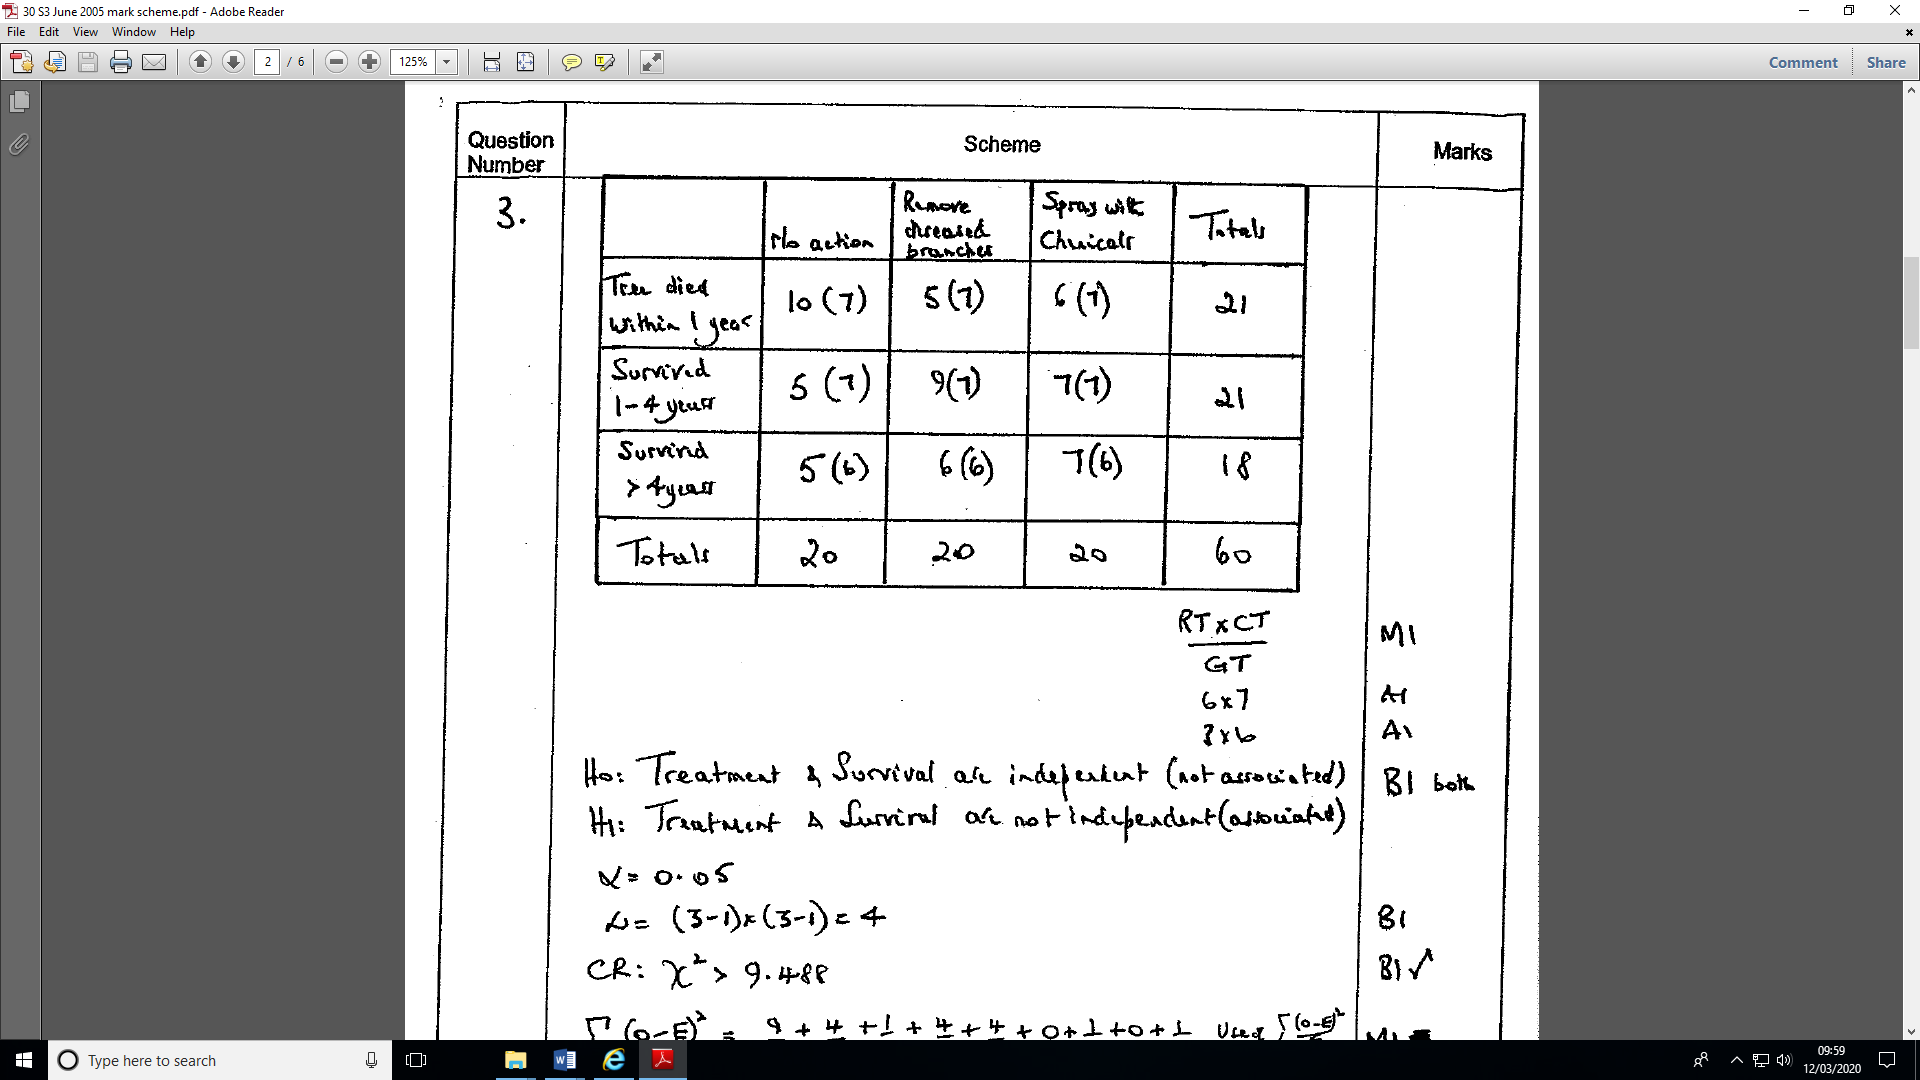 30 S3 June 2005 mark scheme.pdf - Adobe Reader
File Edit View Window Help
2 / 6 125% Comment Share
Question Number Scheme Marks
3.
No action Remove diseased branches Spray with Chemicals Totals
Tree died within 1 year 10 (7) 5 (7) 6 (7) 21
Survived 1-4 years 5 (7) 9(7) 7(7) 21
Survived > 4 years 5 (6) 6 (6) 7(6) 18
Totals 20 20 20 60
RT x CT / GT M1
6x7 A1
3x6 A1
H0: Treatment & Survival are independent (not associated) B1 both
H1: Treatment & Survival are not independent (associated)
α = 0.05
ν = (3-1)x(3-1) = 4 B1
CR: χ² > 9.488 B1✓
Σ (O-E)² = 9 + 4 + 1 + 4 + 4 + 0 + 1 + 0 + 1 Use of Σ (O-E)² M1
Type here to search
09:59
12/03/2020